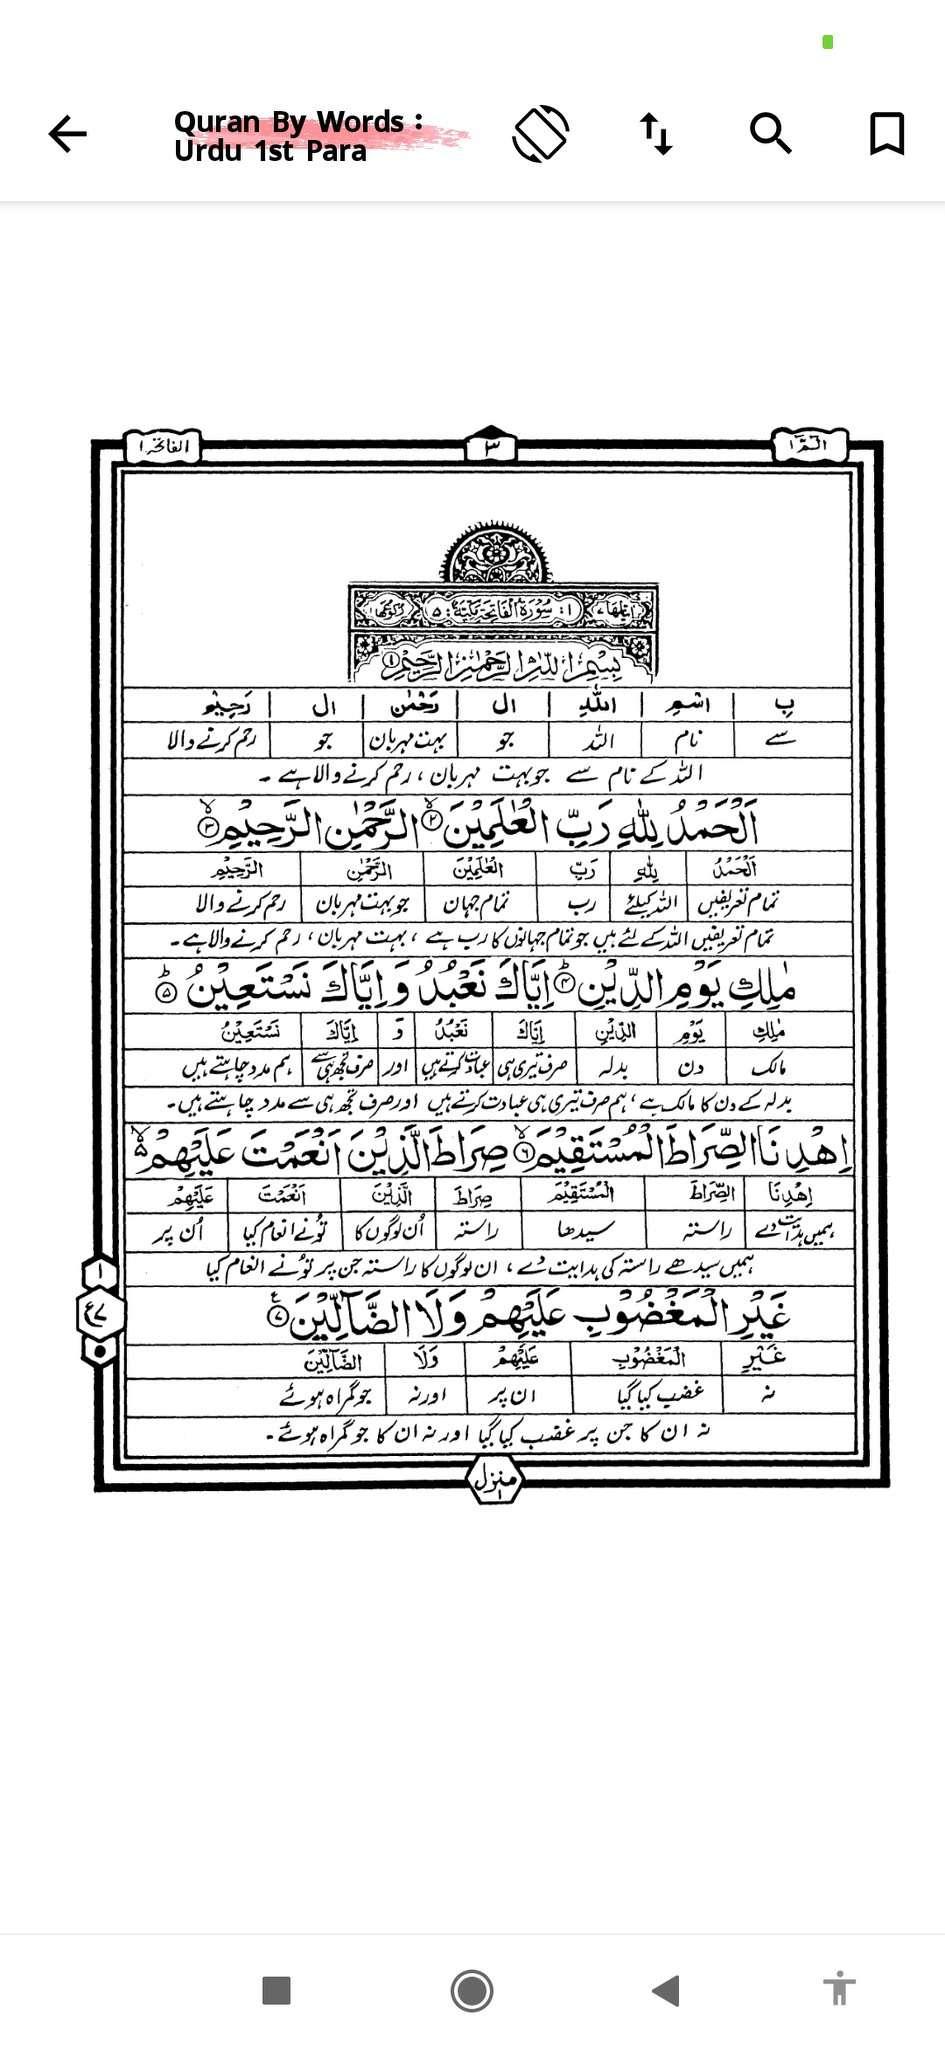 Quran By Words :
Urdu 1st Para
الٓمّٓ ١
٣
الفاتحۃ ١
اٰیٰتُهَا ٧ ١: سُوْرَةُ الْفَاتِحَةِ مَكِّيَّةٌ: ٥ رُكُوْعُهَا ١
بِسْمِ اللّٰهِ الرَّحْمٰنِ الرَّحِيْمِ ١
بِ | اسْمِ | اللّٰهِ | ال | رَحْمٰنِ | ال | رَحِيْمِ
سے | نام | اللہ | جو | بہت مہربان | جو | رحم کرنے والا
اللہ کے نام سے جو بہت مہربان ، رحم کرنے والا ہے ۔
اَلْحَمْدُ لِلّٰهِ رَبِّ الْعٰلَمِيْنَ ٢ الرَّحْمٰنِ الرَّحِيْمِ ٣
اَلْحَمْدُ | لِلّٰهِ | رَبِّ | الْعٰلَمِيْنَ | الرَّحْمٰنِ | الرَّحِيْمِ
تمام تعریفیں | اللہ کیلئے | رب | تمام جہان | جو بہت مہربان | رحم کرنے والا
تمام تعریفیں اللہ کے لئے ہیں جو تمام جہانوں کا رب ہے ، بہت مہربان ، رحم کرنے والا ہے ۔
مٰلِكِ يَوْمِ الدِّيْنِ ٤ اِيَّاكَ نَعْبُدُ وَ اِيَّاكَ نَسْتَعِيْنُ ٥
مٰلِكِ | يَوْمِ | الدِّيْنِ | اِيَّاكَ | نَعْبُدُ | وَ | اِيَّاكَ | نَسْتَعِيْنُ
مالک | دن | بدلہ | صرف تیری ہی | عبادت کرتے ہیں | اور | صرف تجھ ہی سے | ہم مدد چاہتے ہیں
بدلہ کے دن کا مالک ہے ، ہم صرف تیری ہی عبادت کرتے ہیں اور صرف تجھ ہی سے مدد چاہتے ہیں۔
اِهْدِنَا الصِّرَاطَ الْمُسْتَقِيْمَ ٦ صِرَاطَ الَّذِيْنَ اَنْعَمْتَ عَلَيْهِمْ ۵
اِهْدِنَا | الصِّرَاطَ | الْمُسْتَقِيْمَ | صِرَاطَ | الَّذِيْنَ | اَنْعَمْتَ | عَلَيْهِمْ
ہمیں ہدایت دے | راستہ | سیدھا | راستہ | اُن لوگوں کا | تُونے انعام کیا | اُن پر
ہمیں سیدھے راستہ کی ہدایت دے ، ان لوگوں کا راستہ جن پر تُونے انعام کیا
١
ع ٧
غَيْرِ الْمَغْضُوْبِ عَلَيْهِمْ وَلَا الضَّآلِّيْنَ ٧
غَيْرِ | الْمَغْضُوْبِ | عَلَيْهِمْ | وَلَا | الضَّآلِّيْنَ
نہ | غضب کیا گیا | ان پر | اور نہ | جو گمراہ ہوئے
نہ ان کا جن پر غضب کیا گیا اور نہ ان کا جو گمراہ ہوئے ۔
منزل ١